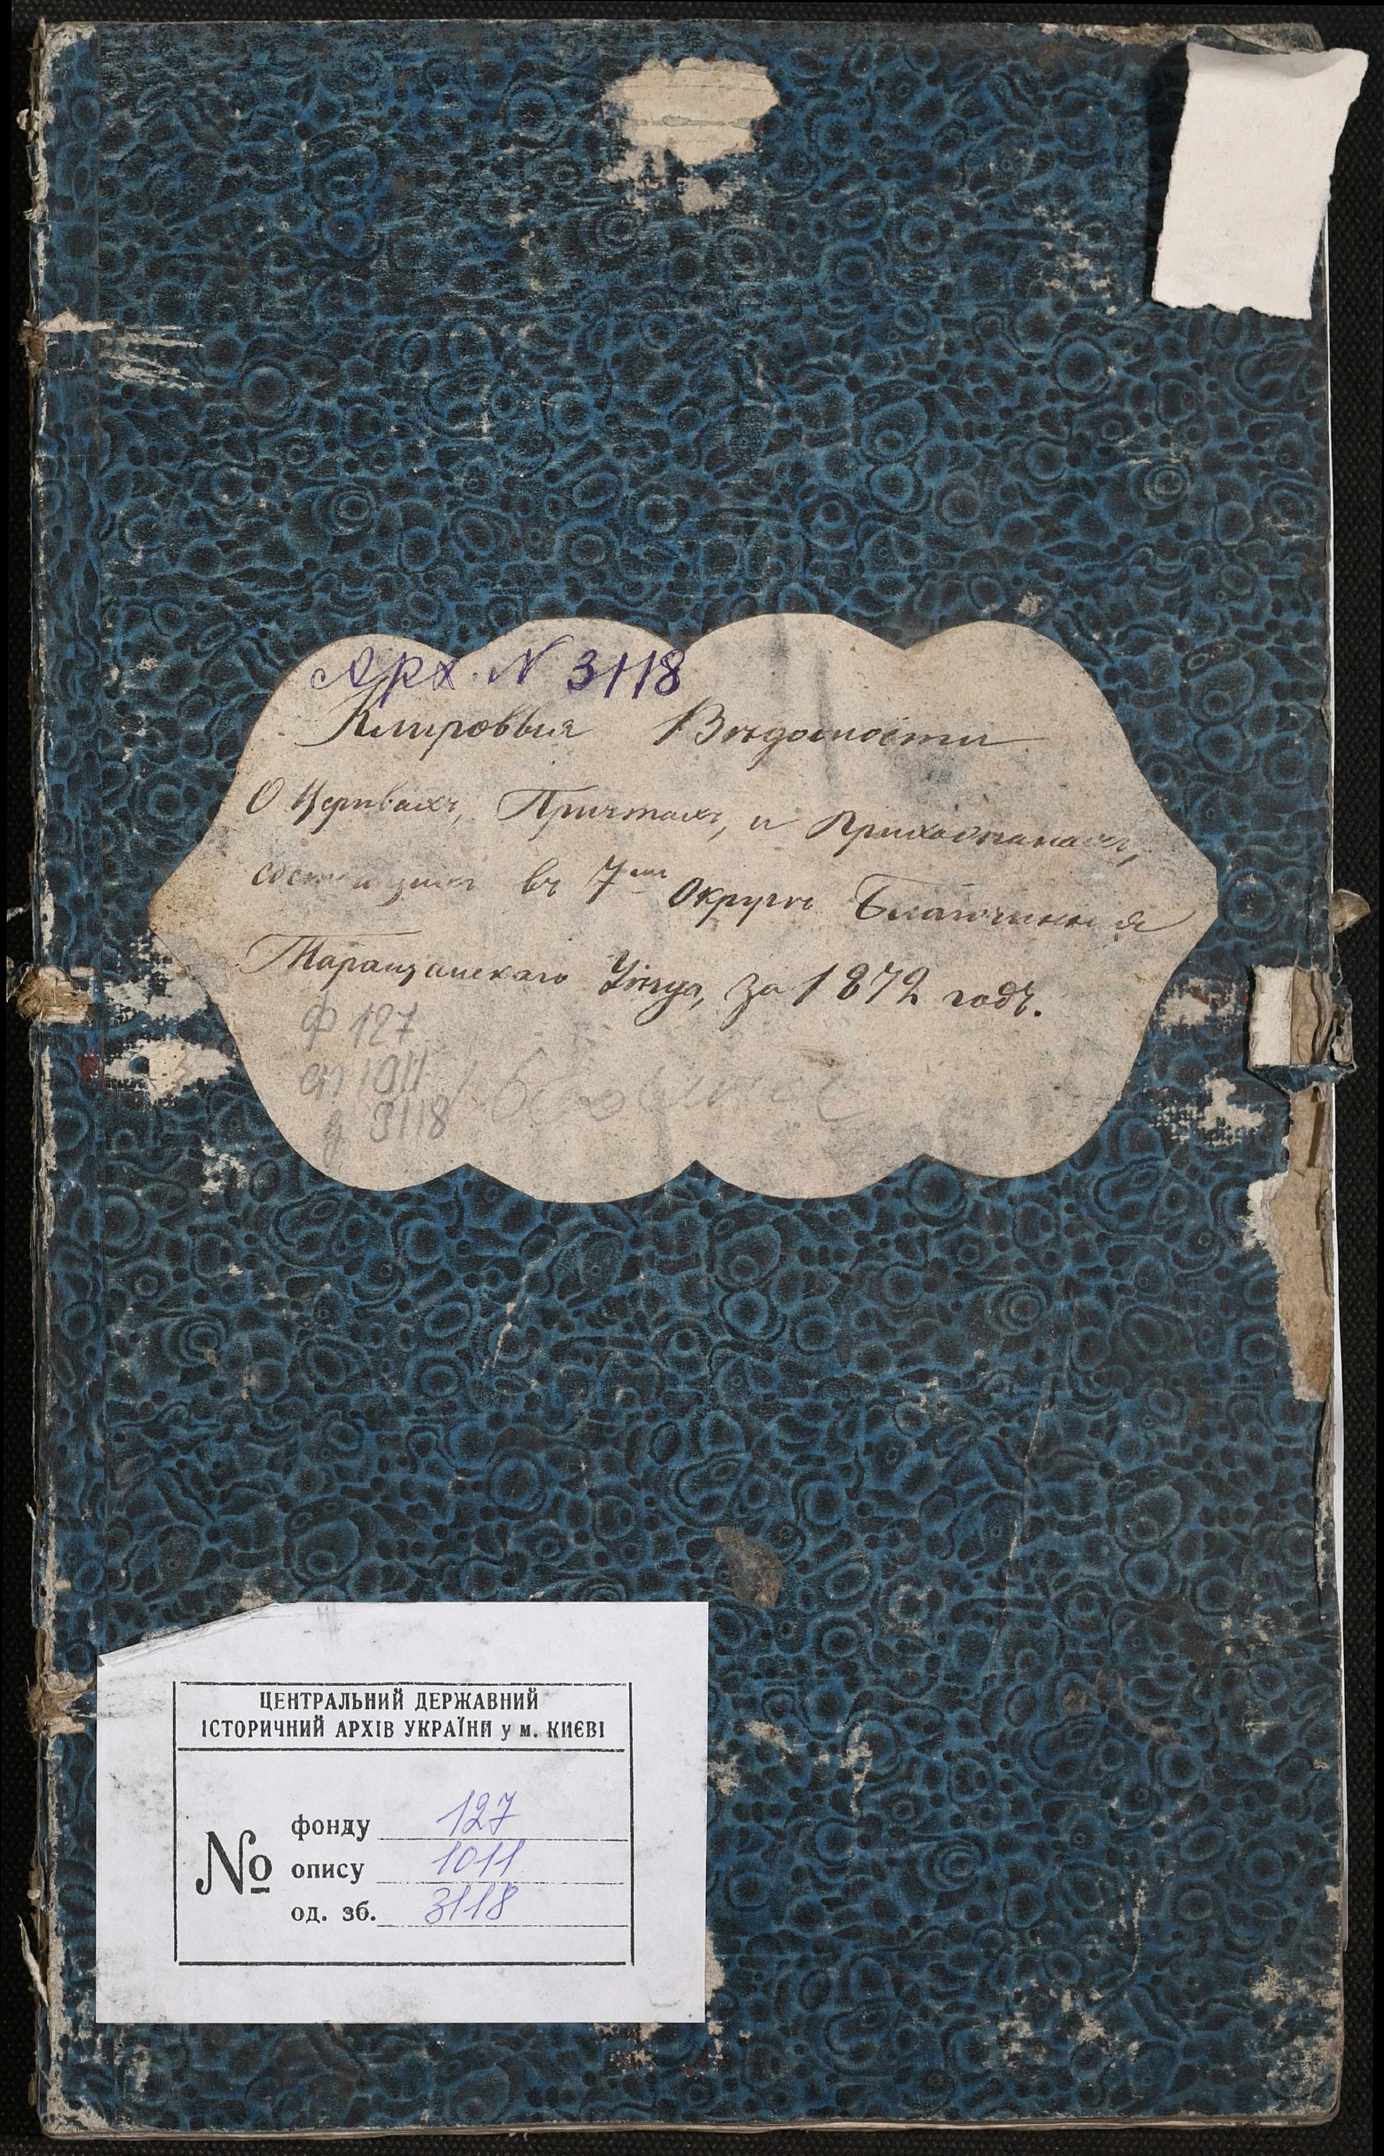 Арх. N 3118
Клировыя Вѣдомости
О Церквахъ, Причтахъ, и Прихожанахъ,
состоящихъ въ 7мъ Округѣ Благочинія
Таращанскаго Уѣзда, за 1872 годъ.
Ф 127
оп 1011
д 3118
ЦЕНТРАЛЬНИЙ ДЕРЖАВНИЙ
ІСТОРИЧНИЙ АРХІВ УКРАЇНИ у м. КИЄВІ
№
фонду 127
опису 1011
од. зб. 3118